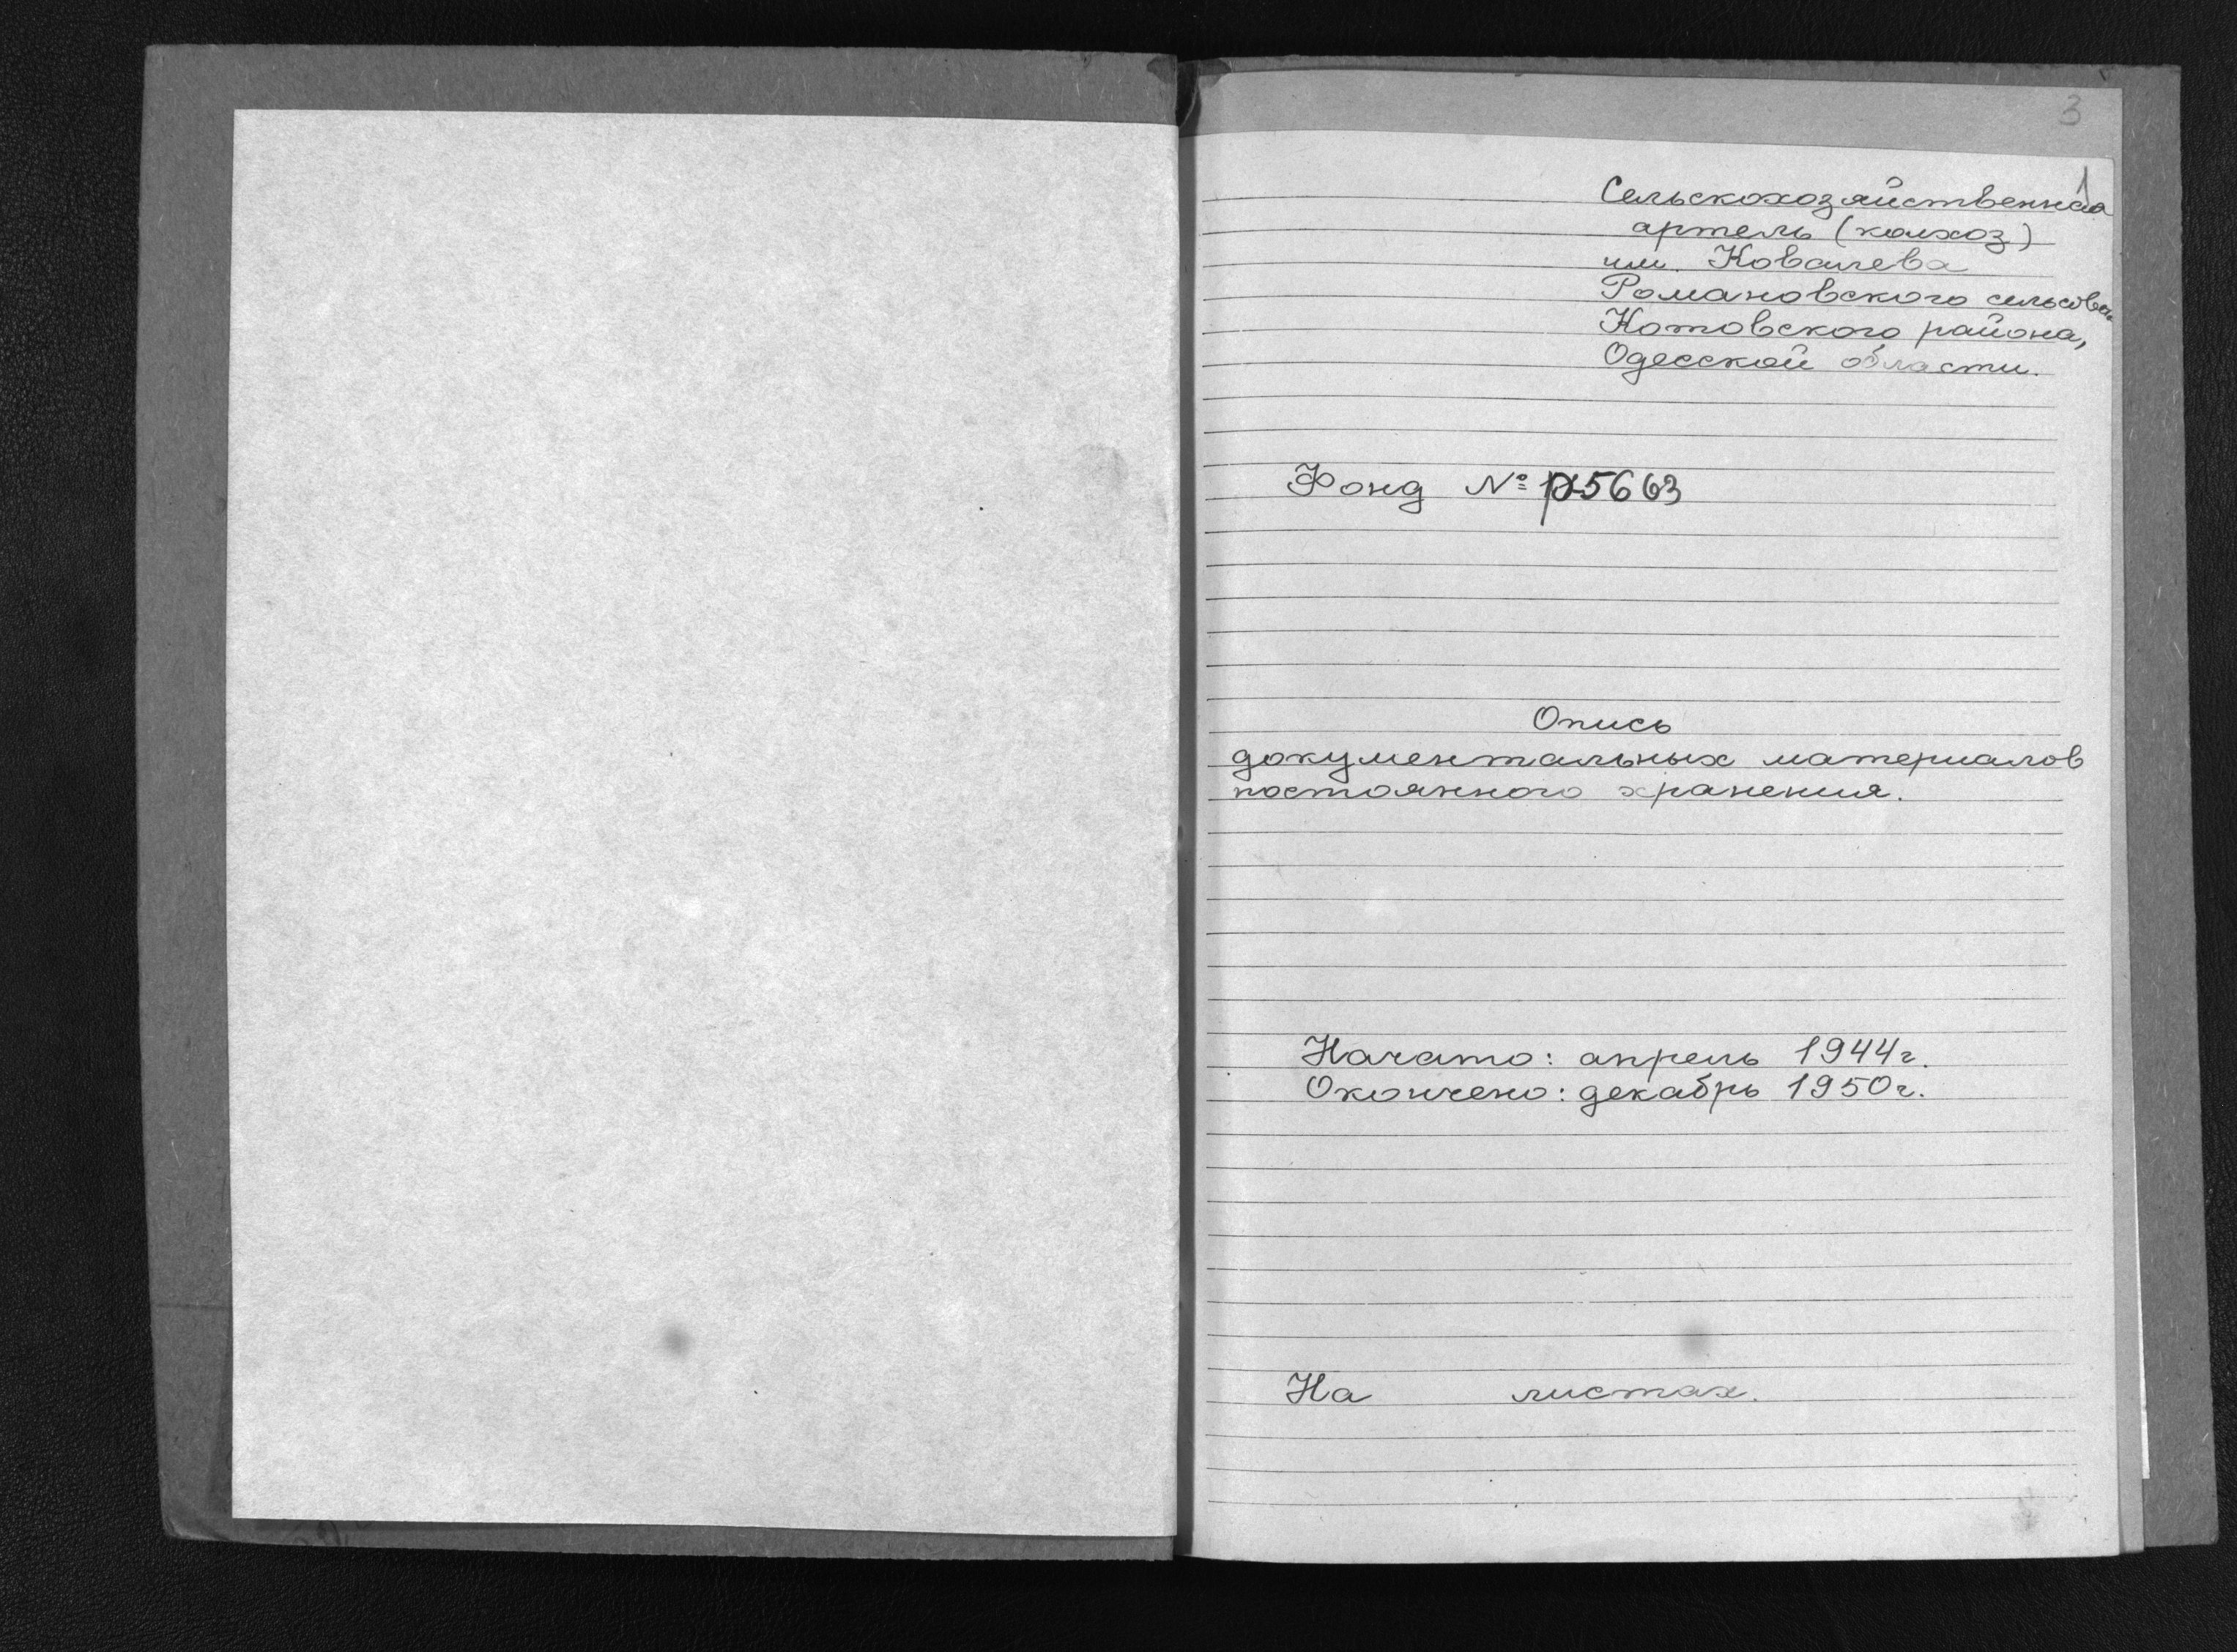 3
1
Сельскохозяйственная
артель (колхоз)
им. Ковалева
Романовского сельсовет.
Котовского района,
Одесской области.
Фонд № р-5663
Опись
документальных материалов
постоянного хранения.
Начато: апрель 1944г.
Окончено: декабрь 1950г.
На листах.